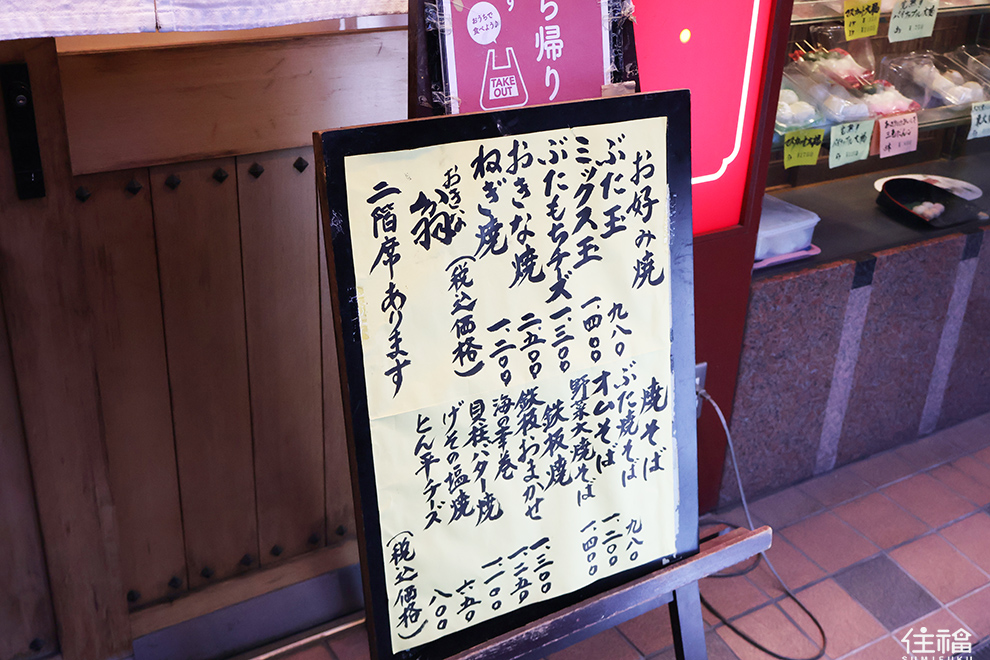 お好み焼
ぶた玉 九八〇
ミックス玉 一、四〇〇
ぶたもちチーズ 一、三〇〇
おきな焼 二、五〇〇
ねぎ焼 一、二〇〇
(税込価格)
おきな
翁
二階席あります
焼そば
ぶた焼そば 九八〇
オムそば 一、二〇〇
野菜大焼そば 一、四〇〇
鉄板焼
鉄板おまかせ 一、三〇〇
海の幸巻 一、二五〇
貝柱バター焼 一、一〇〇
げその塩焼 六五〇
とん平チーズ 八〇〇
(税込価格)
おうちで
食べよう♪
ち帰り
す
TAKE
OUT
住福
SUMISUKU